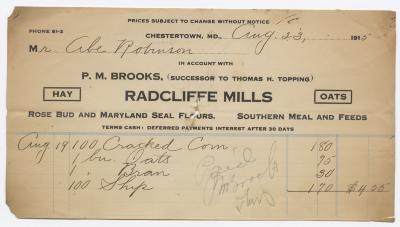 PRICES SUBJECT TO CHANGE WITHOUT NOTICE
PHONE 81-2
CHESTERTOWN, MD., Aug 23, 1915
Mr Abe Robinson
IN ACCOUNT WITH
P. M. BROOKS, (SUCCESSOR TO THOMAS H. TOPPING)
HAY RADCLIFFE MILLS OATS
ROSE BUD AND MARYLAND SEAL FLOURS. SOUTHERN MEAL AND FEEDS
TERMS CASH: DEFERRED PAYMENTS INTEREST AFTER 30 DAYS
Aug 19 100 Cracked Corn 180
1 bu. Oats 75
1 " Bran 30
100 Ship 170 $4.55
Paid
P M Brooks